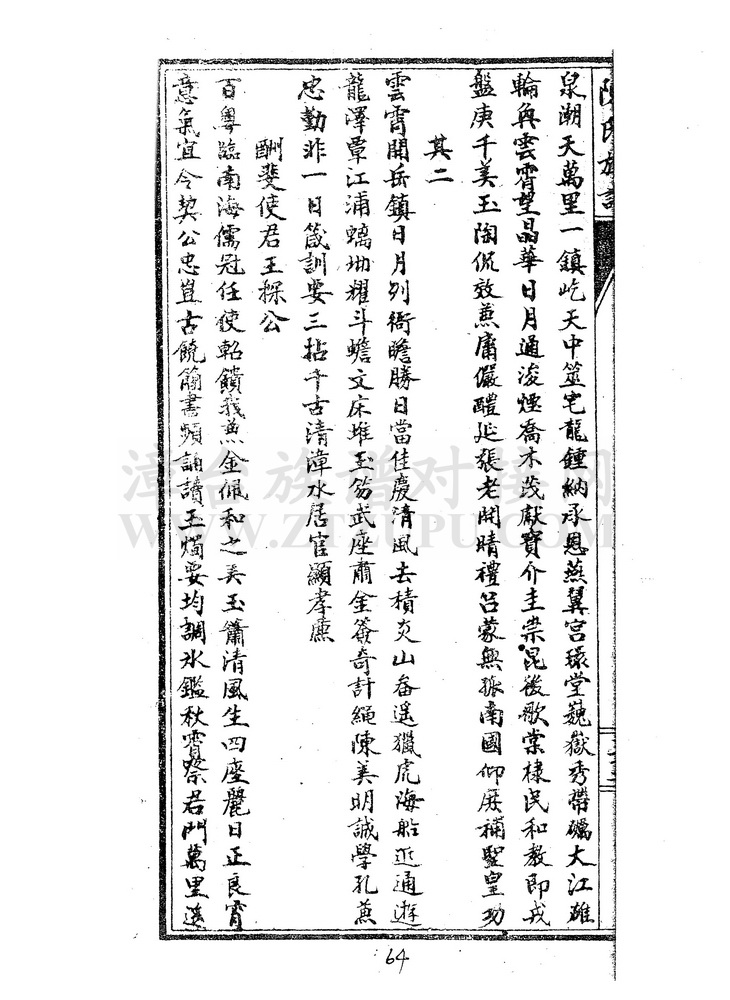 泉潮天萬里一鎮屹天中筮宅龍鍾納承恩燕翼宮環堂巍嶽秀帶礪大江雄
輪奐雲霄望晶華日月通淩煙喬木茂献寶介圭崇昆後歌棠棣民和教即戎
盤庚千美玉陶侃效蒸庸儼醴延張老開晴禮呂蒙無孤南國仰展補聖皇功
其二
雲霄開岳鎮日月列衙瞻勝日當佳慶清風去積炎山畬遥獵虎海船近通遊
龍澤覃江浦螭坳耀斗蟾文床堆玉笏武座肅金簽奇計繩陳美明誠學孔蒸
忠勤非一日箴訓要三拈千古清漳水居官顯孝廉
酬斐使君王探公
百粵臨南海儒冠任使軺饋我蒸金佩和之美玉簫清風生四座麗日正良宵
意氣宜今契公忠豈古饒簡書頻誦讀玉燭要均調水鑑秋霄察君門萬里遥
陳氏族譜
漳台族谱对接网
WWW.ZTZUPU.COM
64